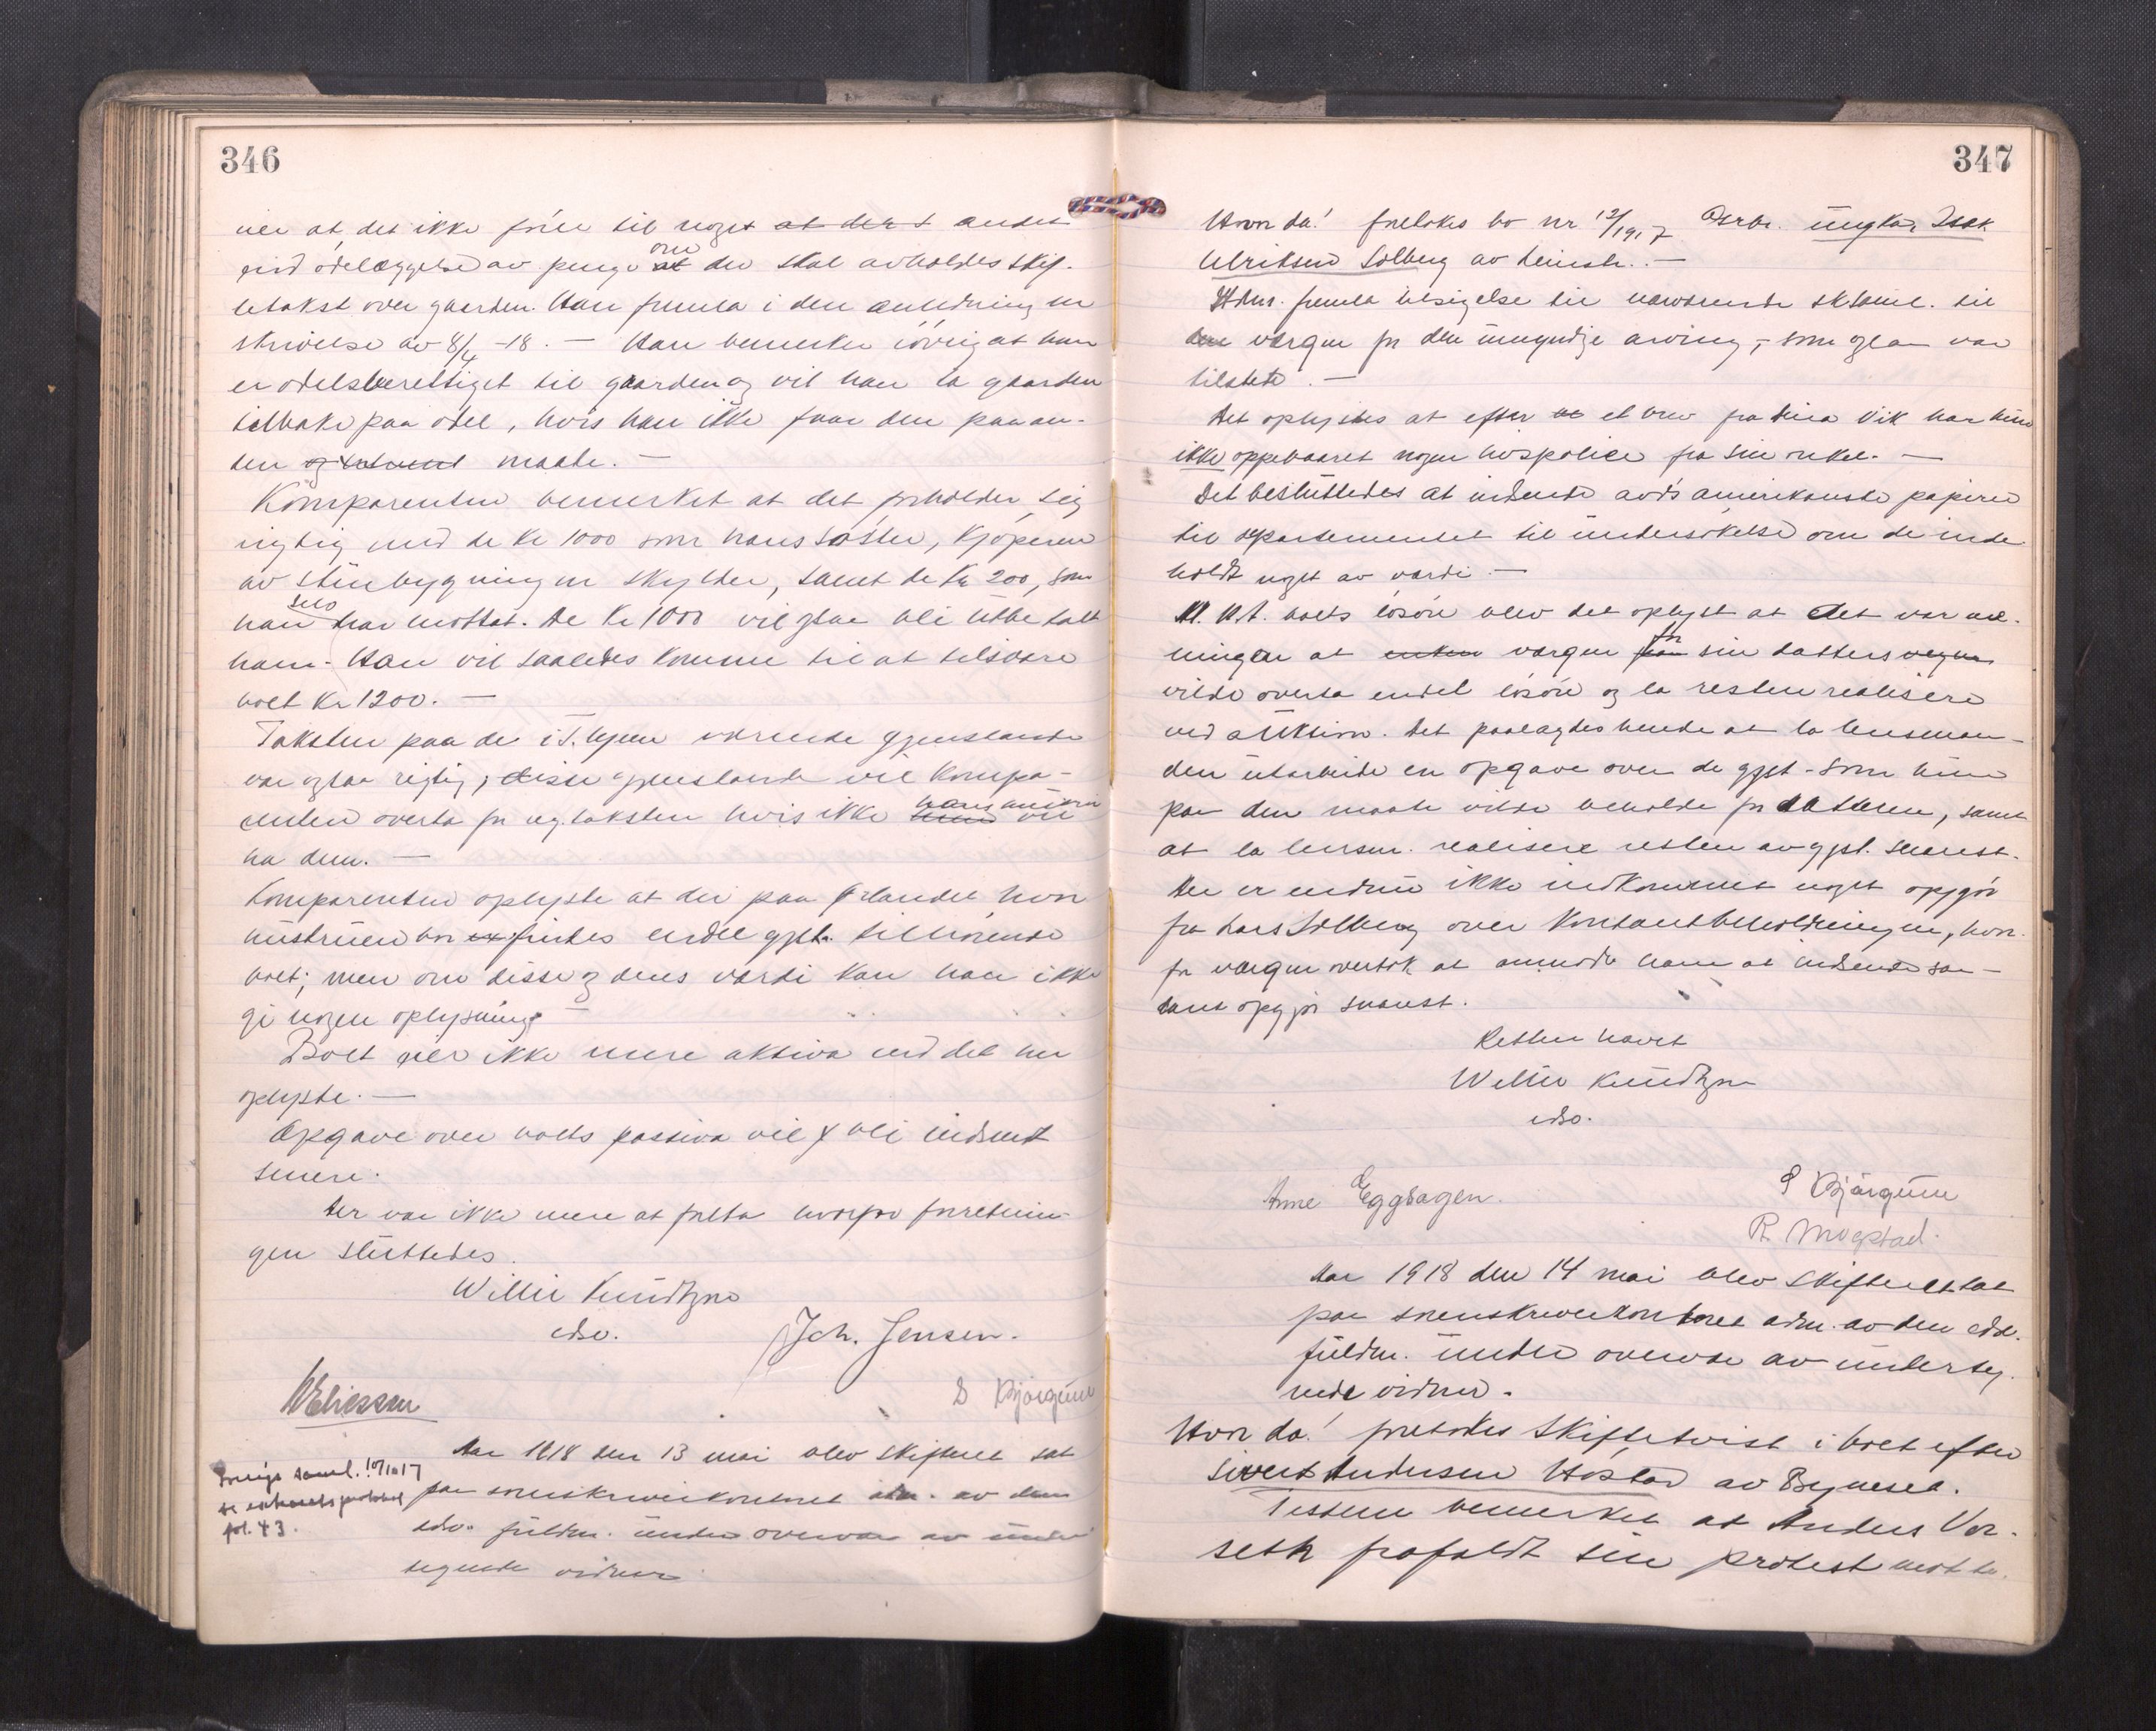 346
ner at det ikke fører til noget at det t andet
end ødelæggelse av penge at om der skal avholdes skif-
tetakst over gaarden. Han fremla i den anledning en
skrivelse av 8/4 -18. — Han bemerker iøvrig at han
er odelsberettiget til gaarden og vil han ta gaarden
tilbake paa odel, hvis han ikke faar den paa an-
den og maate. —
Komparenten bemerket at det forholder sig
rigtig med de kr 1000 som hans søster, kjøperen
av stuebygningen skylder, samt de kr 200, som
han selv har mottat. De kr 1000 vil ogsaa bli utbetalt
ham. Han vil saaledes komme til at tilsvare
boet kr 1200. —
Taksten paa de i T.hjem værende gjenstande
var ogsaa rigtig; disse gjenstande vil kompa-
renten overta for reg.taksten hvis ikke hans
ha dem. —
Komparenten oplyste at der paa Ørlandet hvor
hustruen bor findes endel gjst. tilhørende
boet; men om disse og deres værdi kan han ikke
gi nogen oplysning —
Boet eier ikke mere aktiva end det her
oplyste. —
Opgave over boets passiva vil bli indsendt
senere.
Der var ikke mere at foreta hvorfor forretnin-
gen sluttedes.
Willie Kundtzon
edsv.
Joh. Jensen.
S Bjørgum
Aar 1918 den 13 mai blev skifteret sat
paa sorenskriverkontoret adm. av den
edsv. fuldm. under overvær av under
tegnede vidner
saml. 10/10 17
se extraretsprotokol
fol. 43.
347
Hvor da! foretokes bo nr 12/1917 ungkar Isak
Ulriksen Solberg av Leinstr. —
Adm. fremla tilsigelse til nærværende sksaml. til
vergen for den umyndige arving, — som ogsaa var
tilstede. —
Det oplystes at efter et brev fra Dina Vik har hun
ikke oppebaaret nogen livspolice fra sin onkel. —
Det besluttedes at indsende avd's amerikanske papirer
til departementet til undersøkelse om de inde-
holdt noget av værdi —
M. H. t. boets løsøre blev det oplyst at det var me-
ningen at enken vergen paa for sin datters vegne
vilde overta endel løsøre og la resten realisere
ved auktion. Det paalagdes hende at la lensman-
den utarbeide en opgave over de gjst. som hun
paa den maate vilde beholde for datteren, samt
at la lensm. realisere resten av gjst. snarest.
Der er endnu ikke indkommet noget opgjør
fra Lars Solberg over kontantbeholdningen, hvor-
for vergen overtok at anmode ham at indsende saa-
dant opgjør snarest.
Retten hævet
Willie Kundtzon
edsv.
Anne Eggbagen.
S Bjørgum
R. Mogstad.
Aar 1918 den 14 mai blev skifteret sat
paa sorenskriverkontoret adm. av den edsv.
fuldm. under overvær av underteg-
nede vidner.
Hvor da! foretokes skiftetvist i boet efter
Sivert Andersen Høstad av Byneset.
Tessem bemerket at Anders Ver-
seth frafaldt sin protest mot ta-